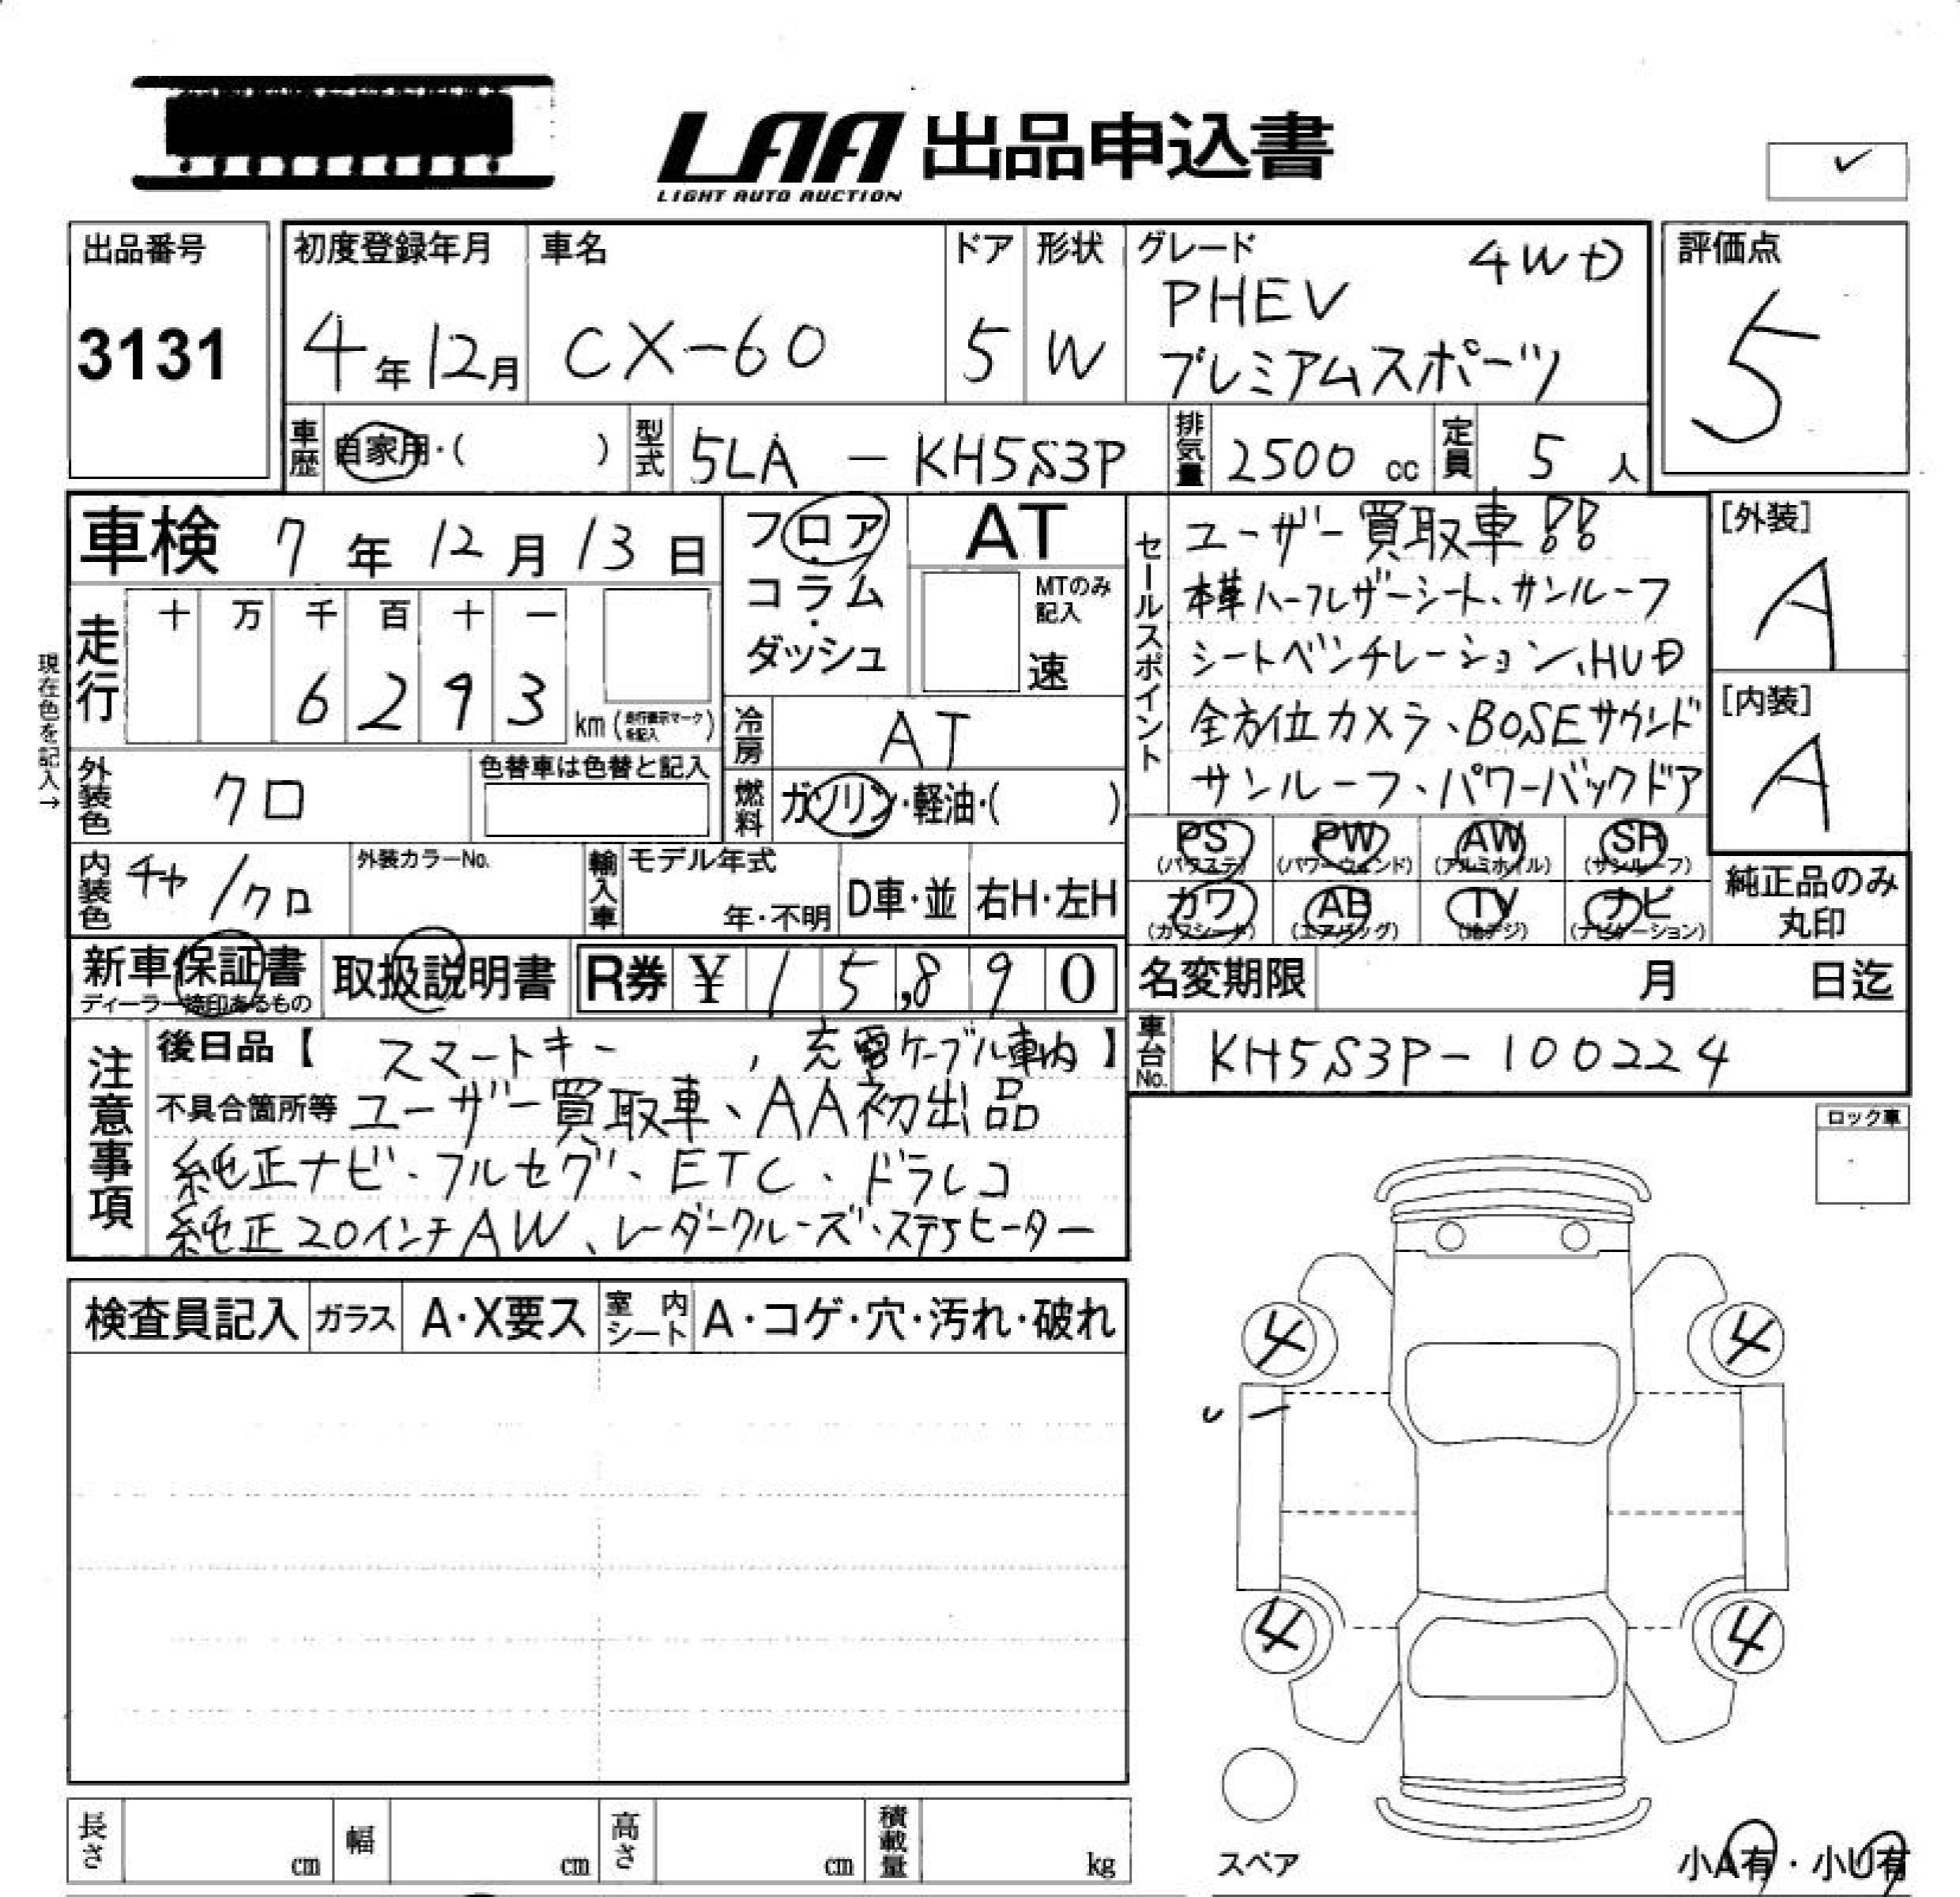 LAA 出品申込書
LIGHT AUTO AUCTION
✓
出品番号
3131
初度登録年月
4年12月
車名
CX-60
ドア
5
形状
W
グレード
4WD
PHEV
プレミアムスポーツ
評価点
5
車歴 自家用・( )
型式 5LA - KH5S3P
排気量 2500 cc
定員 5 人
車検 7年12月13日
フロア・コラム・ダッシュ
AT
MTのみ記入
速
走行
十 万 千 百 十 一
6 2 9 3 km (走行表示マークを記入)
現在色を記入→
冷房 AT
外装色 クロ
色替車は色替と記入
燃料 ガソリン・軽油・( )
内装色 チャ/クロ
外装カラーNo.
輸入車
モデル年式
年・不明
D車・並
右H・左H
セールスポイント
ユーザー買取車!!
本革ハーフレザーシート、サンルーフ
シートベンチレーション、HUD
全方位カメラ、BOSEサウンド
サンルーフ、パワーバックドア
[外装]
A
[内装]
A
PS (パワステ)
PW (パワーウィンド)
AW (アルミホイル)
SR (サンルーフ)
カワ (カワシート)
AB (エアバッグ)
TV (地デジ)
ナビ (ナビゲーション)
純正品のみ
丸印
新車保証書
ディーラー締印あるもの
取扱説明書
R券 ¥ 15,890
名変期限 月 日迄
車台No. KH5S3P-100224
注意事項
後日品【 スマートキー , 充電ケーブル車内 】
不具合箇所等 ユーザー買取車、AA初出品
純正ナビ・フルセグ、ETC、ドラレコ
純正20インチAW、レーダークルーズ・ステラヒーター
ロック車
検査員記入
ガラス
A・X要ス
室内シート
A・コゲ・穴・汚れ・破れ
4
4
4
4
スペア
小A有・小U有
長さ cm
幅 cm
高さ cm
積載量 kg